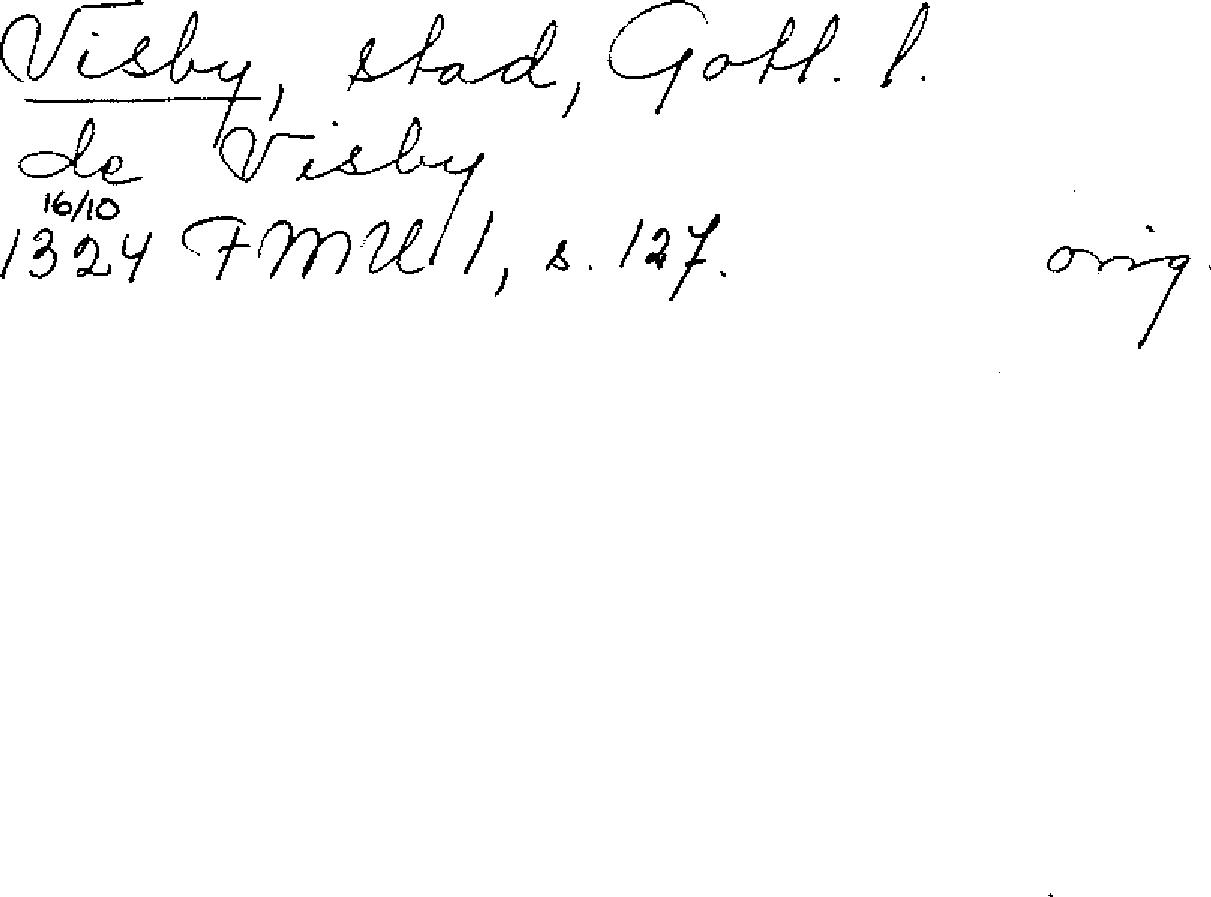 Visby, stad, Gotl. l.
de Visby
16/10
1324 FMU 1, s. 127. orig.